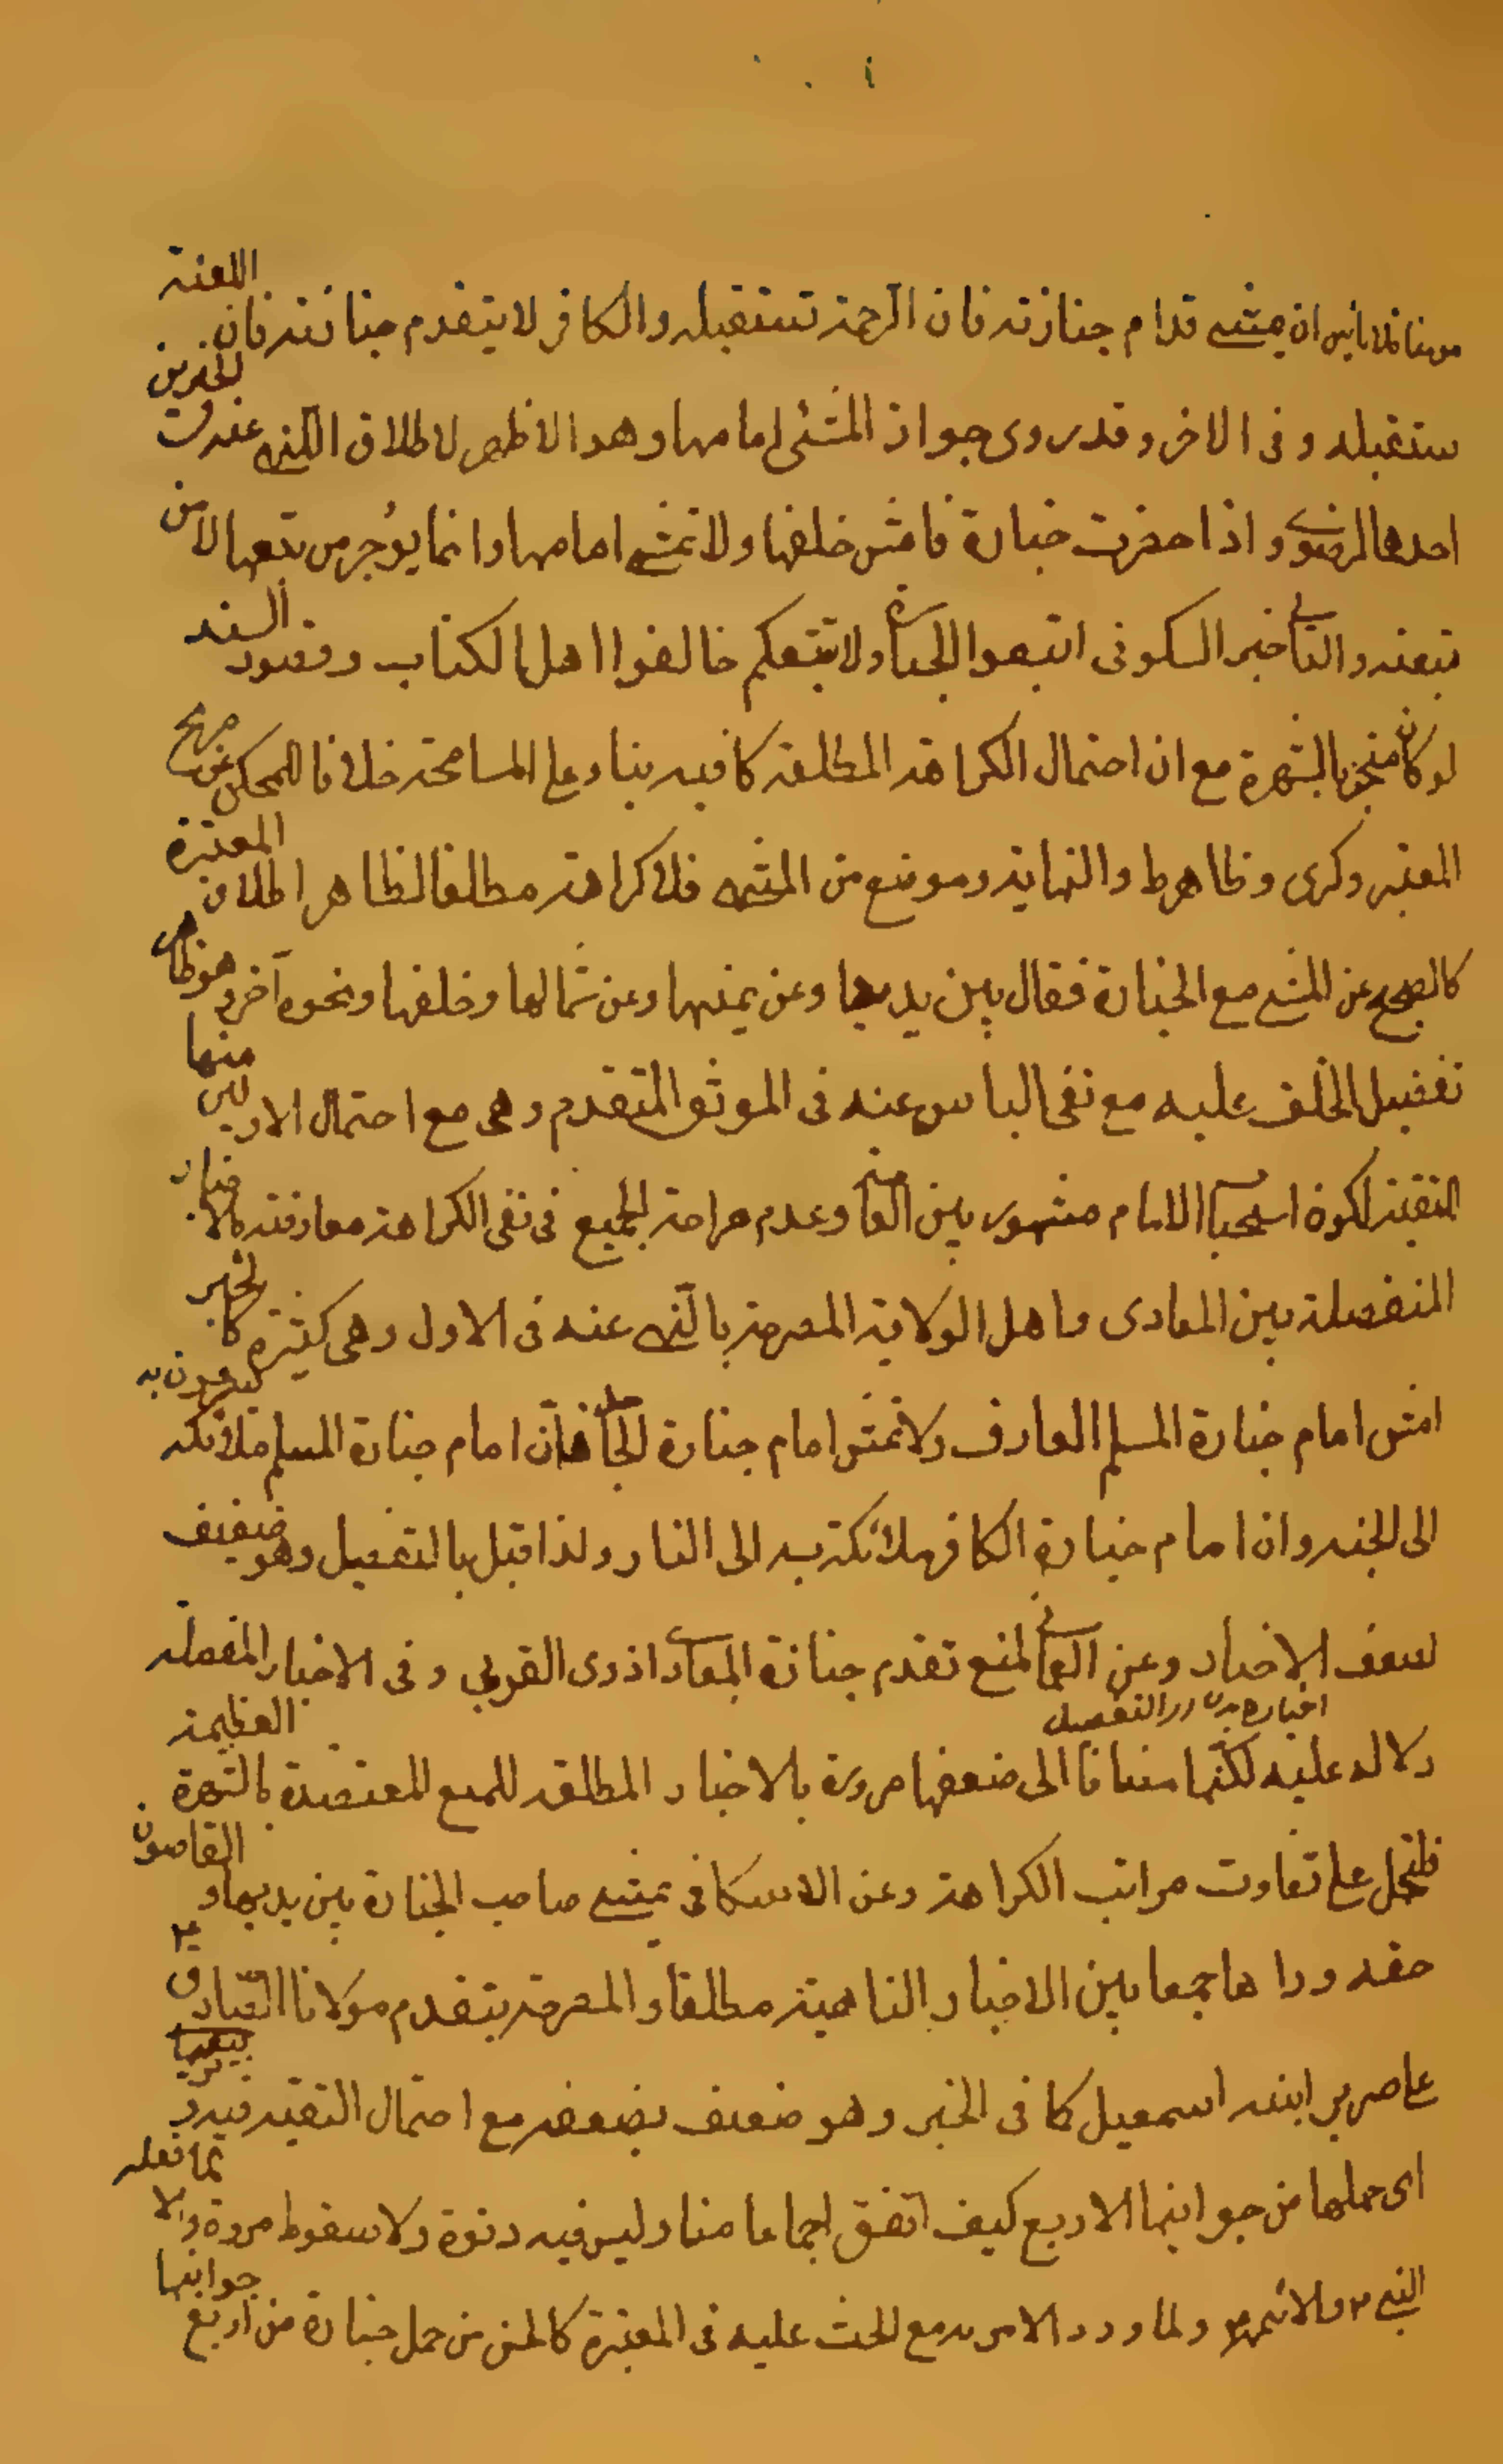 مومنا فلا باس ان يمشى قدام جنازته فان الرحمة تستقبله والكافر لا يتقدم جنازته فان اللعنة
ستقبله وفى الاخر وقد روى جواز المشى امامها وهو الاظهر لاطلاق النهى عنه فى الخبرين
احدها الرضوى واذا حضرت جنازة فامش خلفها ولا تمش امامها وانما يؤجر من تبعها لا من
تبعته والثانى خبر السكونى اتبعوا الجنازة ولا تتبعكم خالفوا اهل الكتاب وقصور السند
لو كان منجبر بالشهرة مع ان احتمال الكراهة المطلقة كافيه بناء على المسامحة خلافا للمحكى عن صريح
المعتبر وكرى وظاهر ط والنهاية وموضع من المنتهى فلا كراهة مطلقا لظاهر اطلاق المعتبرة
كالصحيح عن المشى مع الجنازة فقال بين يديها وعن يمنها وعن شمالها وخلفها ونحوه آخر وهو ظاهر
تفضيل الخلف عليه مع نفى الباس عنه فى الموثق المتقدم وهى مع احتمال الاولين منها
التقية لكونه استحباب الامام مشهور بين العامة وعدم صراحة الجميع فى نفى الكراهة معارضة بالاخبار
المنفصلة بين المعادى واهل الولاية المصرحة بالنهى عنه فى الاول وهى كثيرة كالخبر
امش امام جنازة المسلم العارف ولا تمش امام جنازة الجاحد فان امام جنازة المسلم ملائكة يسرعون به
الى الجنه وان امام جنازة الكافر ملائكة به الى النار ولذا قيل بالتفصيل وهو ضعيف
لضعف الاخبار وعن العمانى المنع تقدم جنازة المعادى لذى القربى وفى الاخبار المفصله
اخباره التفصيل
دلاله عليه لكنها مضافا الى ضعفها مروية بالاخبار المطلقه للمنع المعتضدة بالشهرة العظيمة
فلتحمل على تفاوت مراتب الكراهة وعن الاسكافى يمشى صاحب الجنازة بين يديها والقاصون
حقه وراها جمعا بين الاخبار الناهية مطلقا والمصرحة بتقدم مولانا الصادق ع
على صرير ابنه اسمعيل كا فى الخبر وهو ضعيف بضعفه مع احتمال التقيه فيه وتربيعها
اى حملها من جوانبها الاربع كيف اتفق اجماعا منا وليس فيه دنوة ولا سقوط مروة والا لما فعله
النبى ص والائمه ع ولما ورد الامر به مع الحث عليه فى المعتبرة كالحسن من حمل جنازة من اربع جوانبها